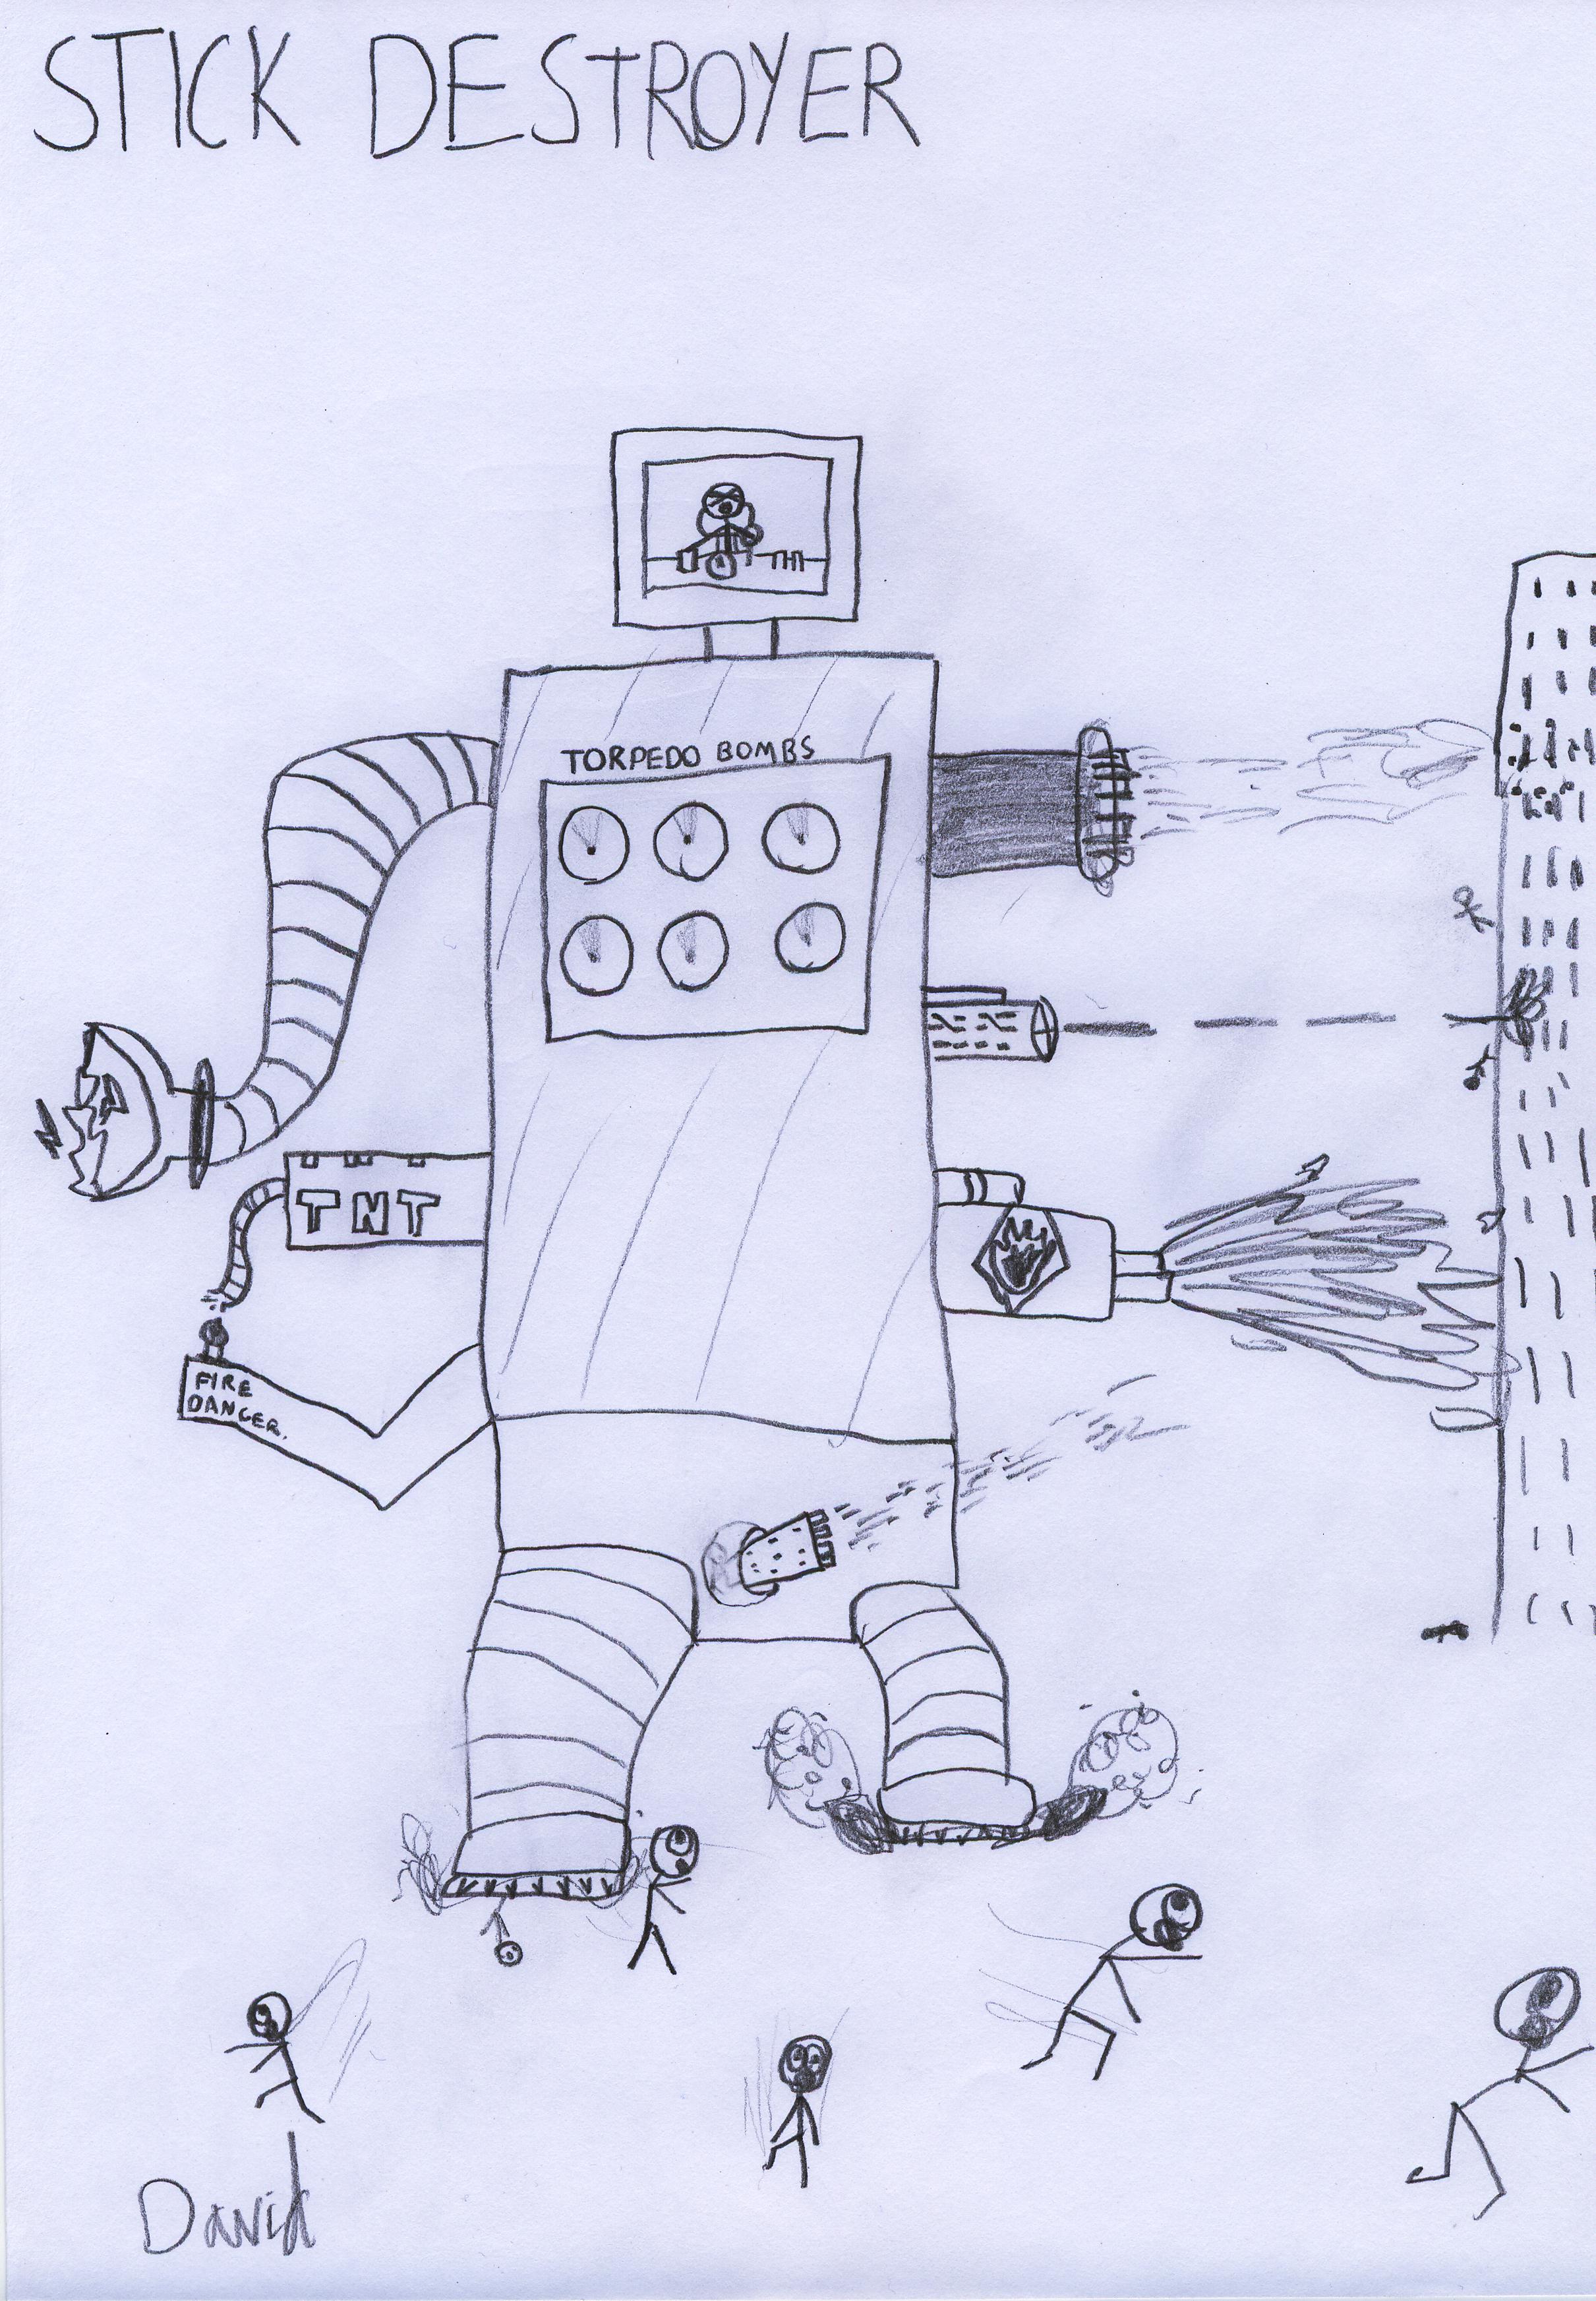 STICK DESTROYER
TORPEDO BOMBS
TNT
FIRE
DANGER.
David